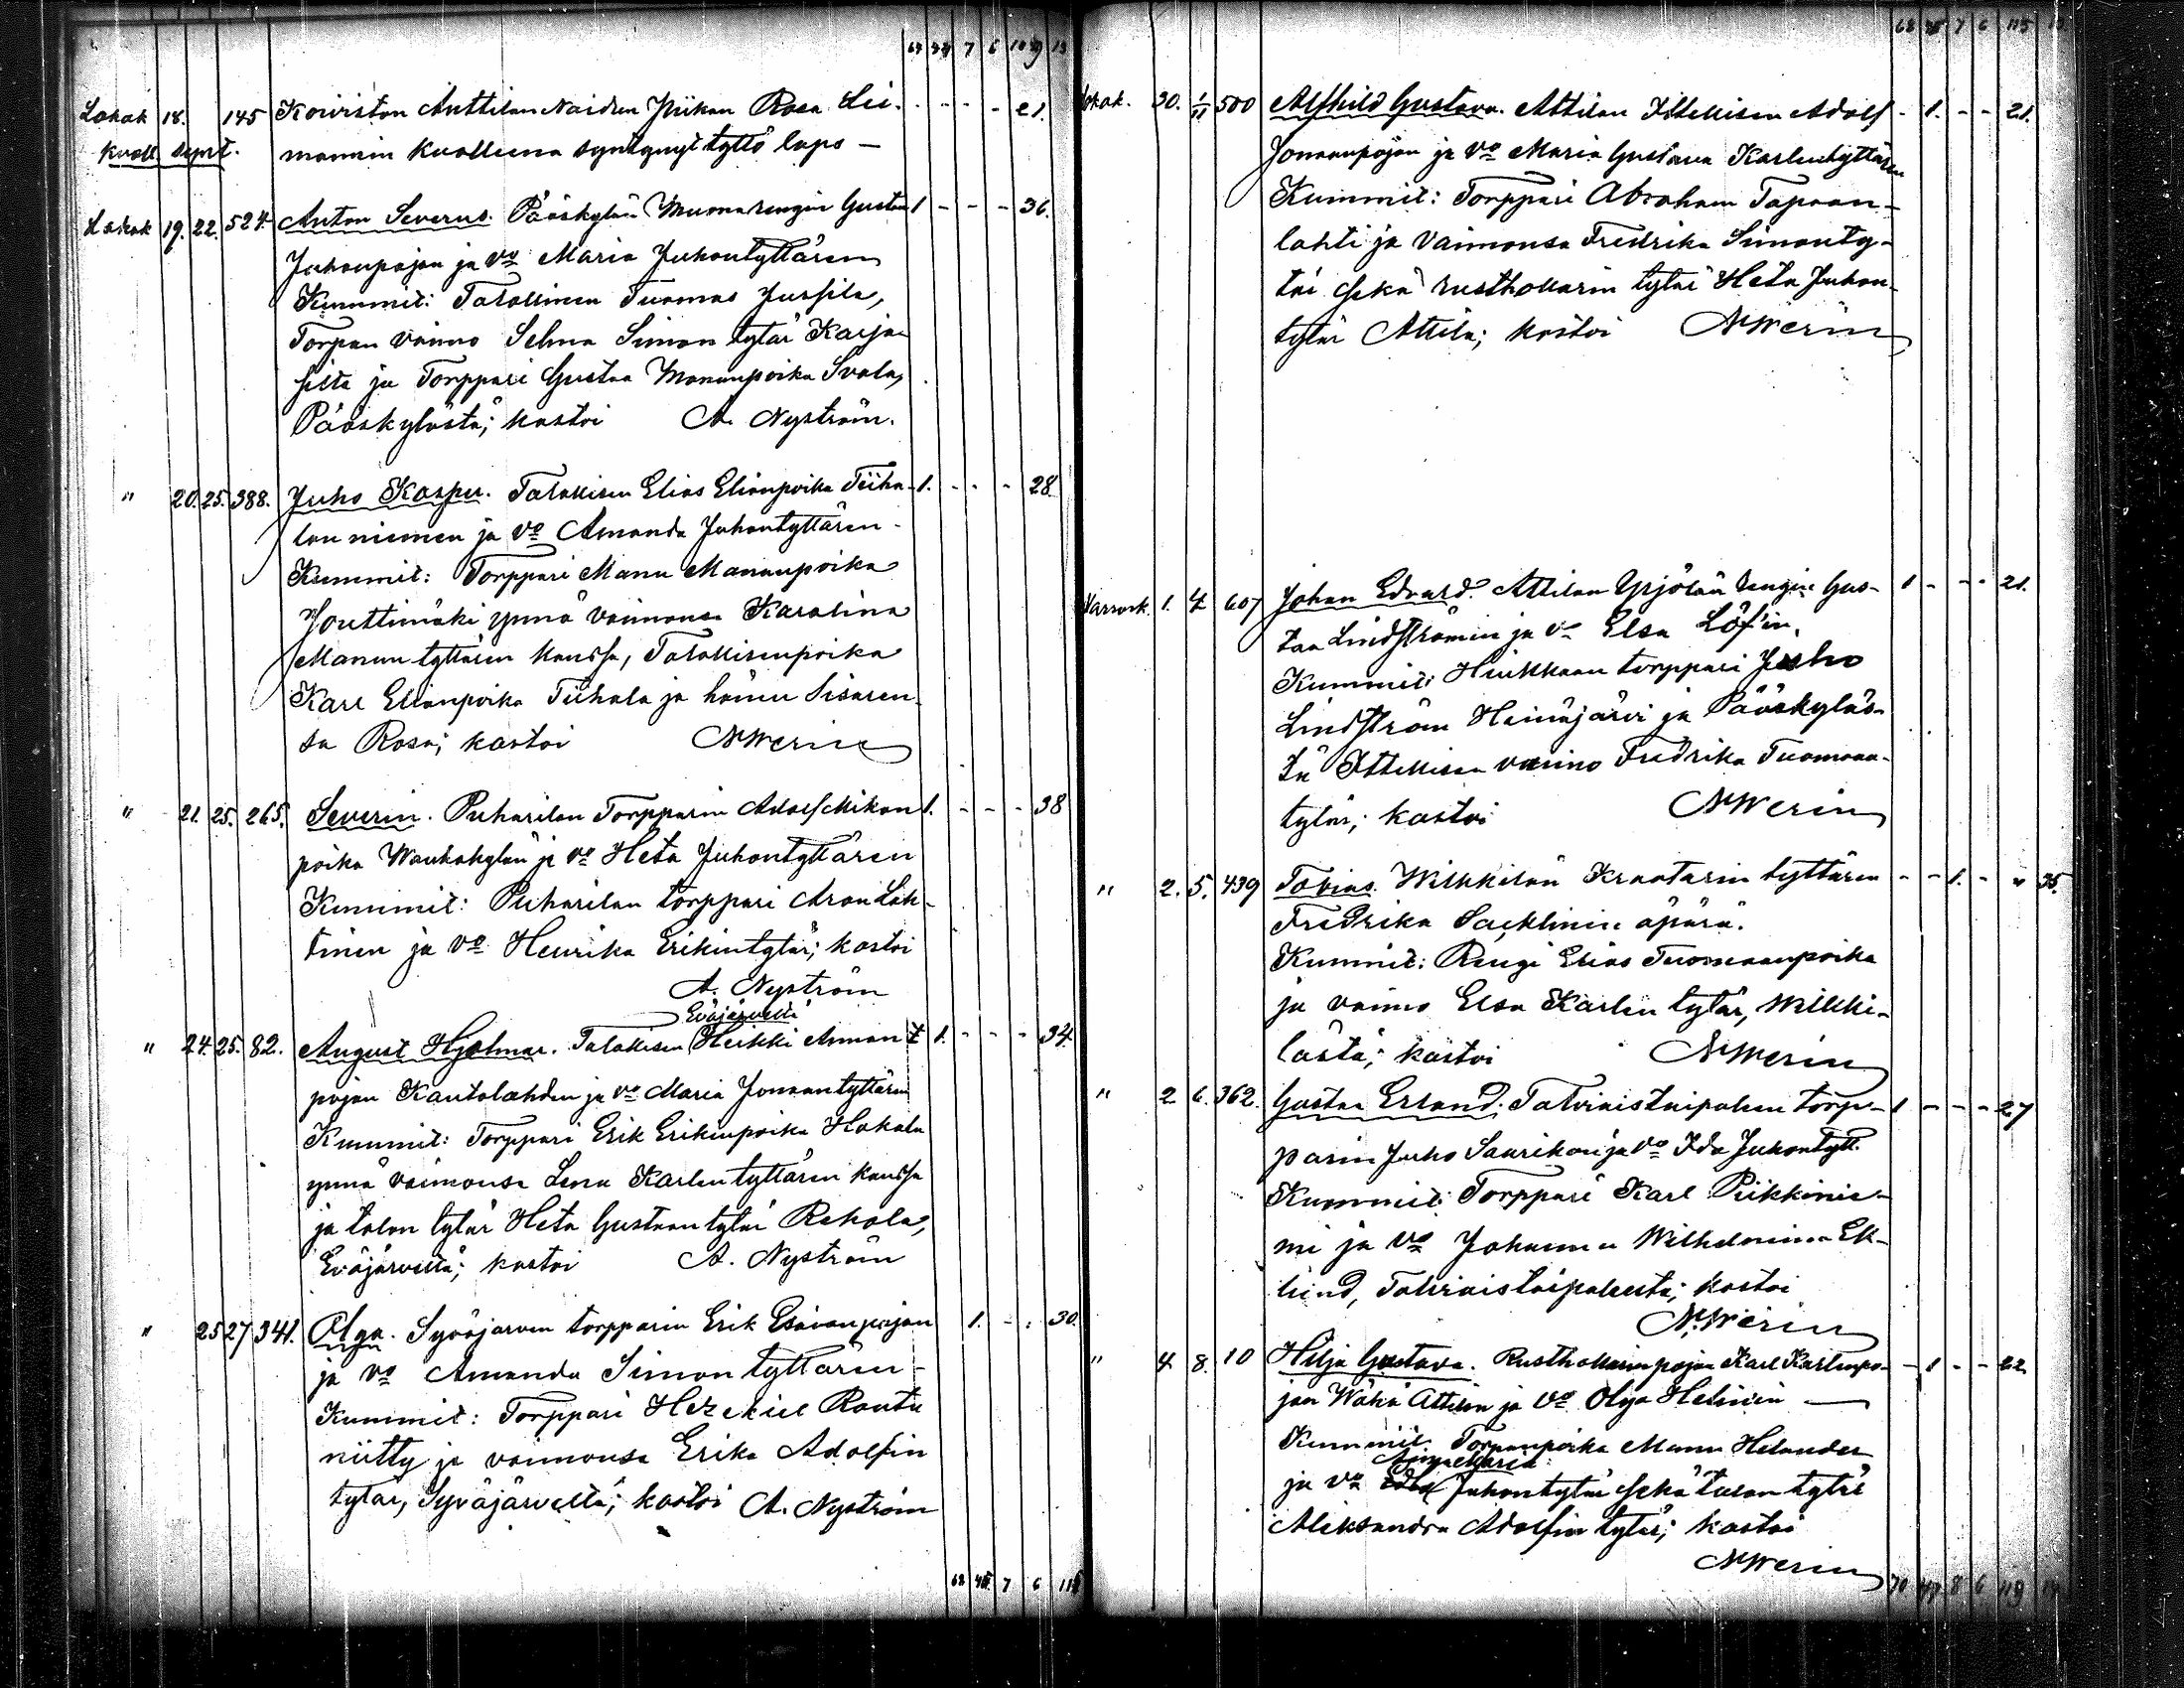 64 44 7 6 109 13
Lokak 18. 145 Koiviston Anttilan Naidun Piikan Rosa Lii- - - - - 21.
kuoll. synt. mannin kuolleena syntynyt tyttö laps —
Lokak 19. 22. 524. Anton Severus. Pääskylän Muonarengin Gustaa 1 - - - 36.
Juhanpojan ja vo Maria Juhontyttären
Kummit: Talollinen Tuomas Jussila,
Torpan vaimo Selma Simon tytär Karja-
silta ja Torppari Gustaa Manunpoika Svala,
Pääskylästä; kastoi A. Nyström.
" 20. 25. 388. Juho Kaspu. Talollisen Elias Elianpoika Tiiha- 1. - - - 28.
lan niemen ja vo Amanda Juhontyttären -
Kummit: Torppari Manu Manunpoika
Jouttimäki ynnä vaimonsa Karolina
Manun tyttären kanssa, Talollisenpoika
Karl Elianpoika Tiihala ja hänen Sisaren-
sa Rosa; kastoi NWerin
" 21. 25. 265. Severin. Puharilan Torpparin Adolf Mikon 1. - - - 38
poika Waukokylän ja vo Heta Juhontyttären
Kummit: Puharilan torppari Aron Lah-
tinen ja vo Henrika Erikintytär; kastoi
A. Nyström
Eväjärveltä
" 24. 25. 82. August Hjalmar. Talollisen Heikki Aman 1. - - - 34.
pojan Kautolahden ja vo Maria Jonaantyttären
Kummit: Torppari Erik Erikinpoika Hakala
ynnä vaimonsa Lena Karlen tyttären kanssa
ja talon tytär Heta Gustaan tytär Rekola,
Eväjärveltä; kastoi A. Nyström
" 25 27 341. Olga. Syväjärven torpparin Erik Esaianpojan 1. - - 30.
ja vo Amanda Simon tyttären -
Kummit: Torppari Hezekiel Rautu
niitty ja vaimonsa Erika Adolfin
tytär, Syväjärveltä; kastoi A. Nyström
68 45 7 6 115
68 45 7 6 115 13
Lokak. 30. 1/11 500 Alfhild Gustava. Attilan Itsellisen Adolf - 1. - - 21.
Jonaanpojan ja vo Maria Gustava Karlentyttären
Kummit: Torppari Abraham Tapaan-
lahti ja Vaimonsa Fredrika Simonty-
tär sekä rusthollarin tytär Heta Juhon-
tytär Attila; kastoi NWerin
Marrask. 1. 4 607 Johan Edvard. Attilan Yrjölän rengin Gus- 1 - - - 21.
taa Lindströmin ja vo Elsa Löf'in.
Kummit: Hiukkaan torppari Juho
Lindström Heinäjärvi ja Pääskyläs-
tä Itsellisen vaimo Fredrika Tuomaan-
tytär; kastoi NWerin
" 2. 5. 439 Tobias. Wilkkilän Kraatarin tyttären - - 1. - " 35.
Fredrika Sacklinin äpärä.
Kummit: Rengi Elias Tuomaanpoika
ja vaimo Elsa Karlen tytär, Wilkki-
lästä; kastoi NWerin
" 2 6. 362. Gustaa Erland. Talviaistaipaleen torp- 1 - - - 27
parin Juho Saarikon ja vo Ida Juhontytt.
Kummit: Torppari Karl Piikkinie-
mi ja vo Johanna Wilhelmiina Ek-
lund, Talviaistaipaleesta; kastoi
NWerin
" 4. 8. 10 Hilja Gustava. Rusthollarinpojan Karl Karlenpo- - 1 - - 22
jan Wähä Attilan ja vo Olga Helinin —
Kummit. Torpanpoika Manu Helander
Anna Maria
ja vo Juhontytär sekä talon tytär
Aleksandra Adolfin tytär; kastoi
NWerin
70 47 8 6 119 14